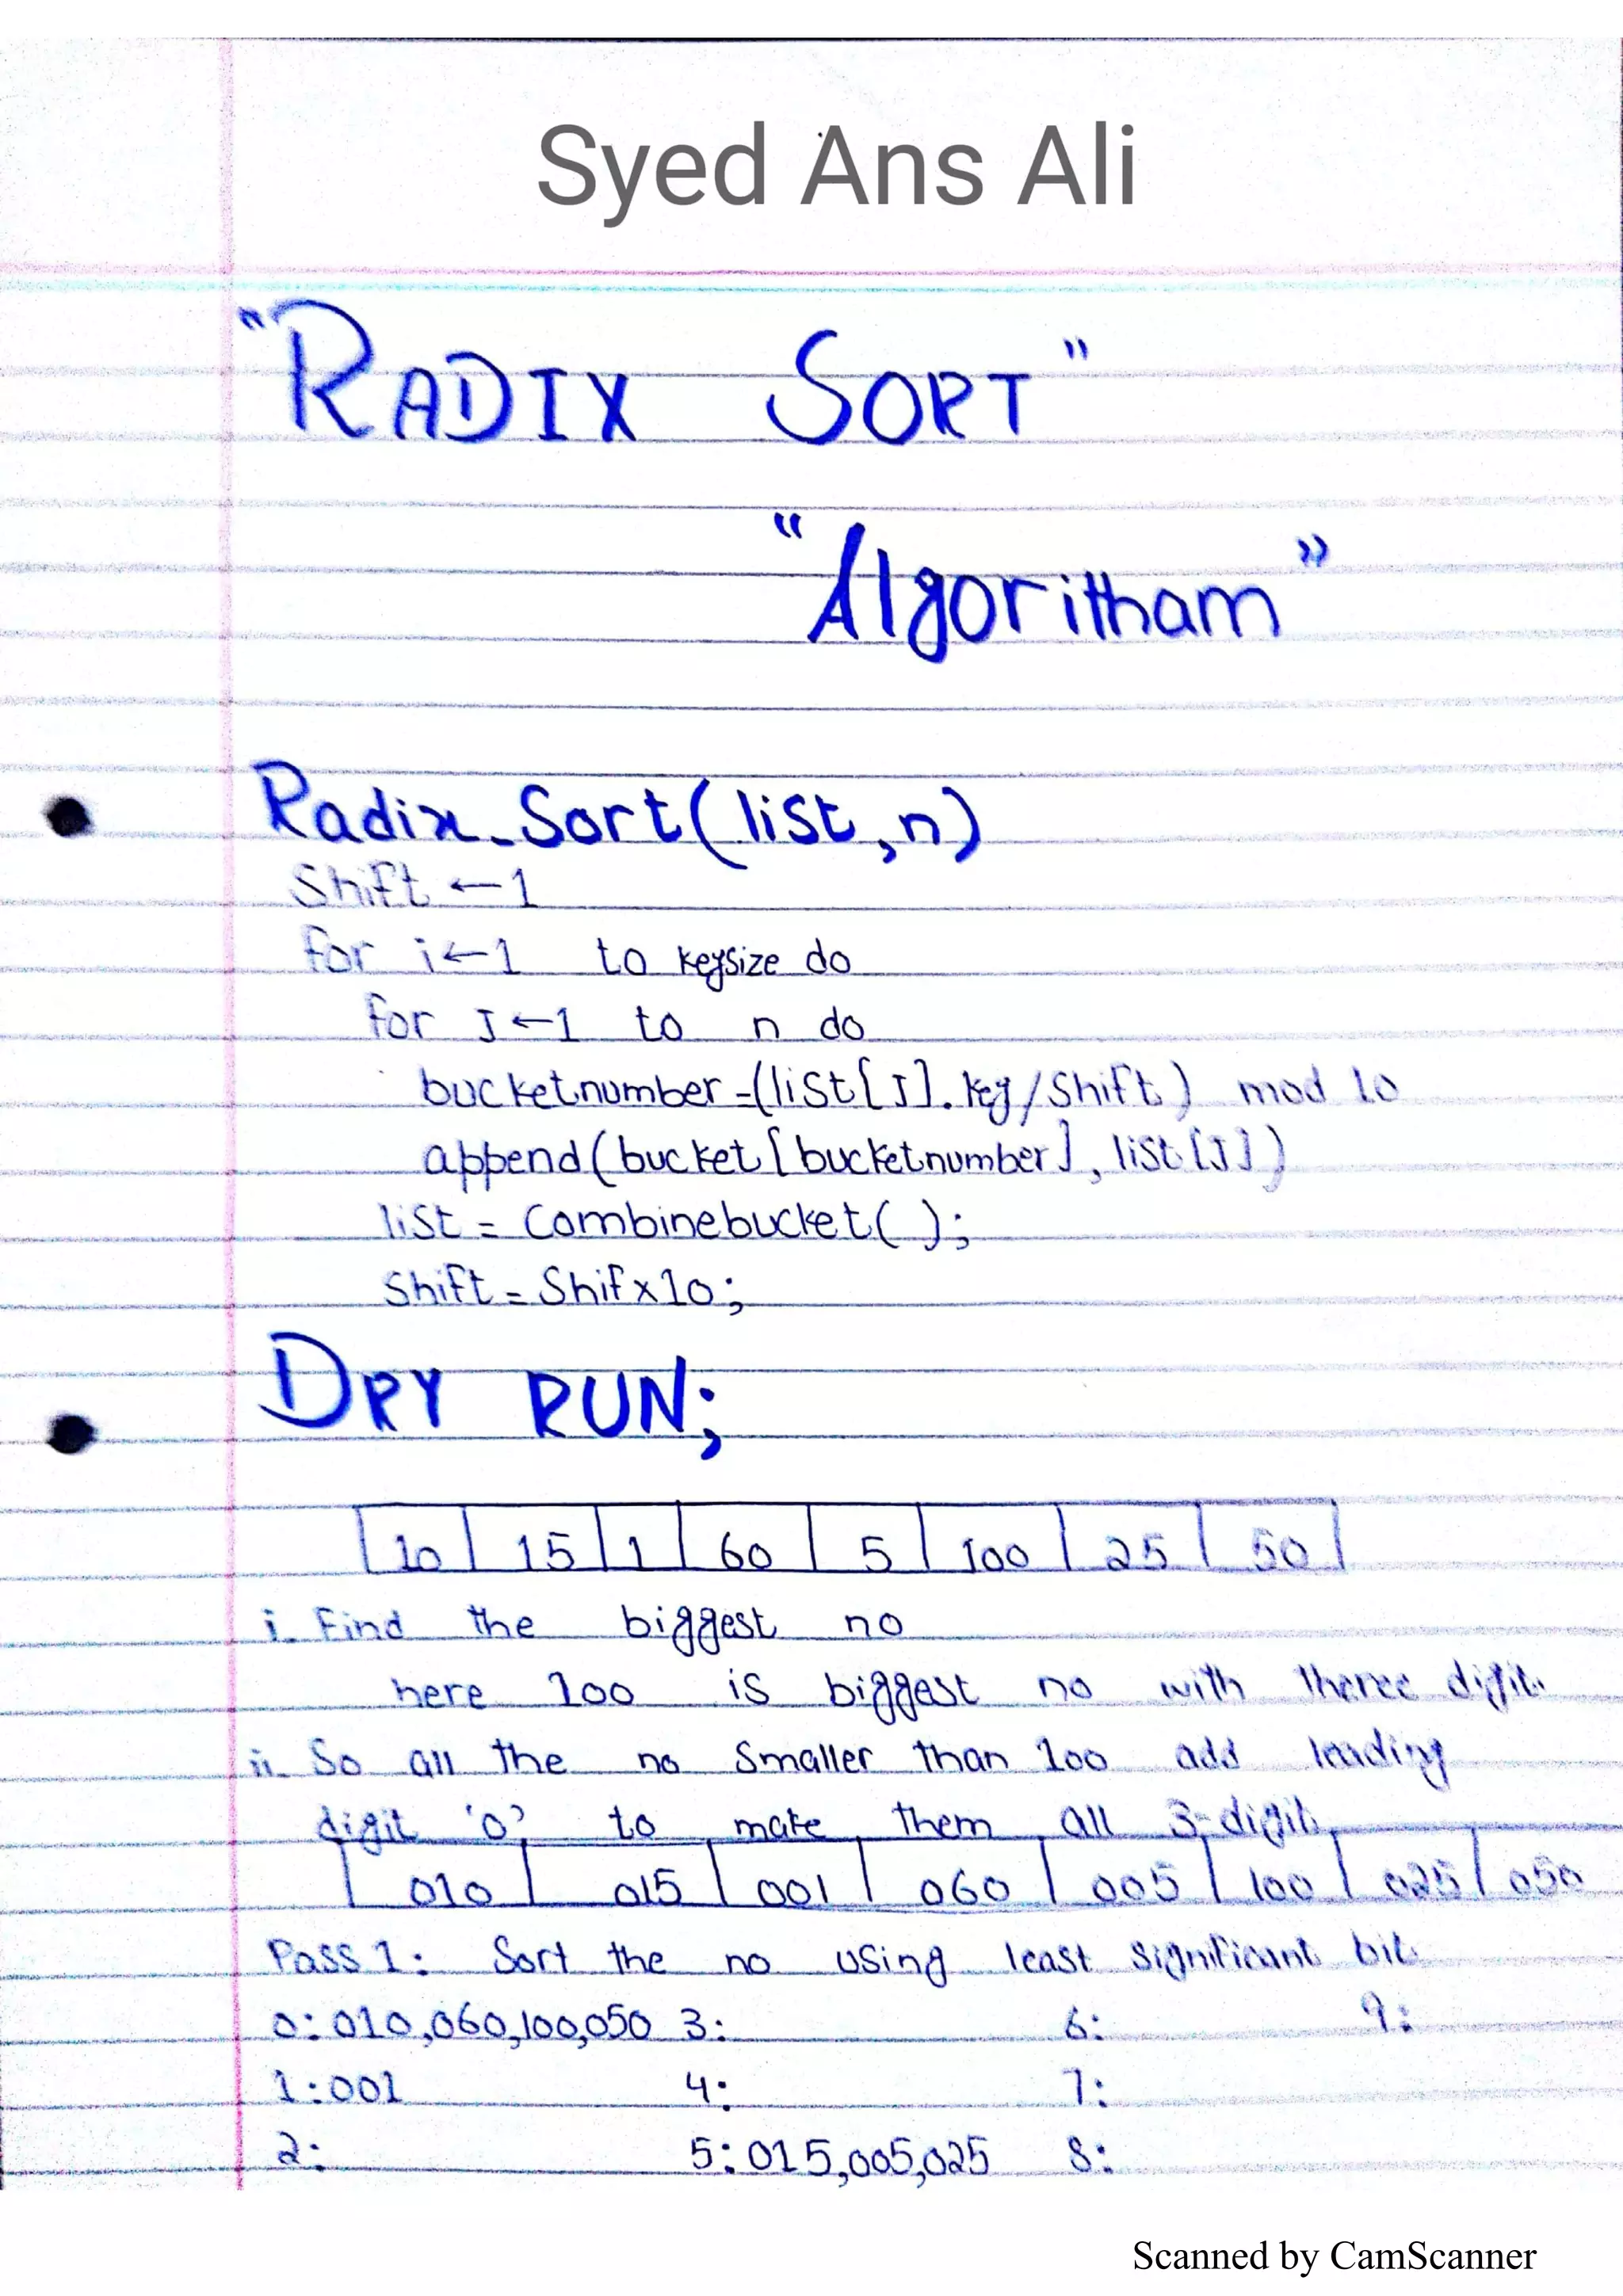 Syed Ans Ali
"RADIX SORT"
"Algoritham"
Radix_Sort(list,n)
Shift ←1
for i←1 to keysize do
for J←1 to n do
bucketnumber=(list[J].key/Shift) mod 10
append(bucket[bucketnumber],list[J])
list = Combinebucket( );
Shift = Shifx10;
DRY RUN;
10 15 1 60 5 100 25 50
i. Find the biggest no
here 100 is biggest no with theree digit.
ii. So all the no Smaller than 100 add leading
digit '0' to make them all 3-digit.
010 015 001 060 005 100 025 050
Pass 1: Sort the no using least significant bit.
0:010,060,100,050 3: 6: 9:
1:001 4: 7:
2: 5:015,005,025 8:
Scanned by CamScanner